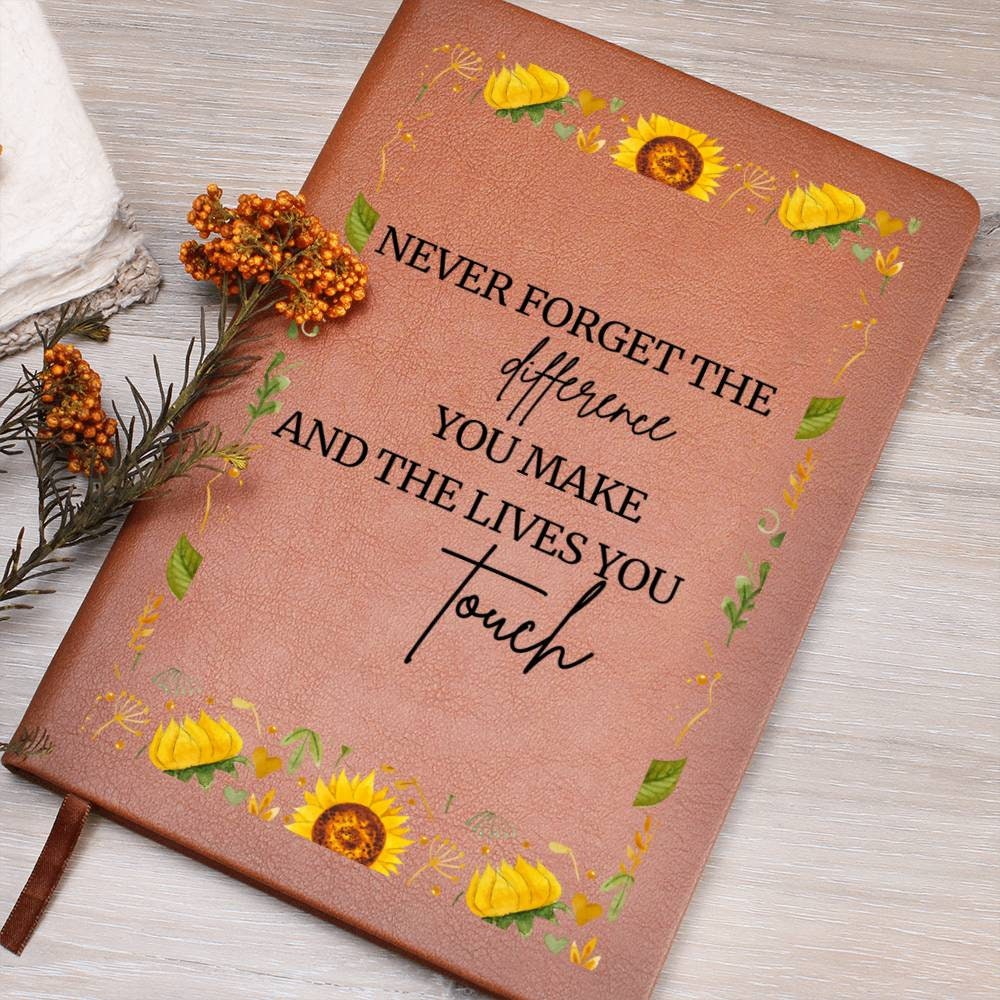 NEVER FORGET THE
difference
YOU MAKE
AND THE LIVES YOU
Touch